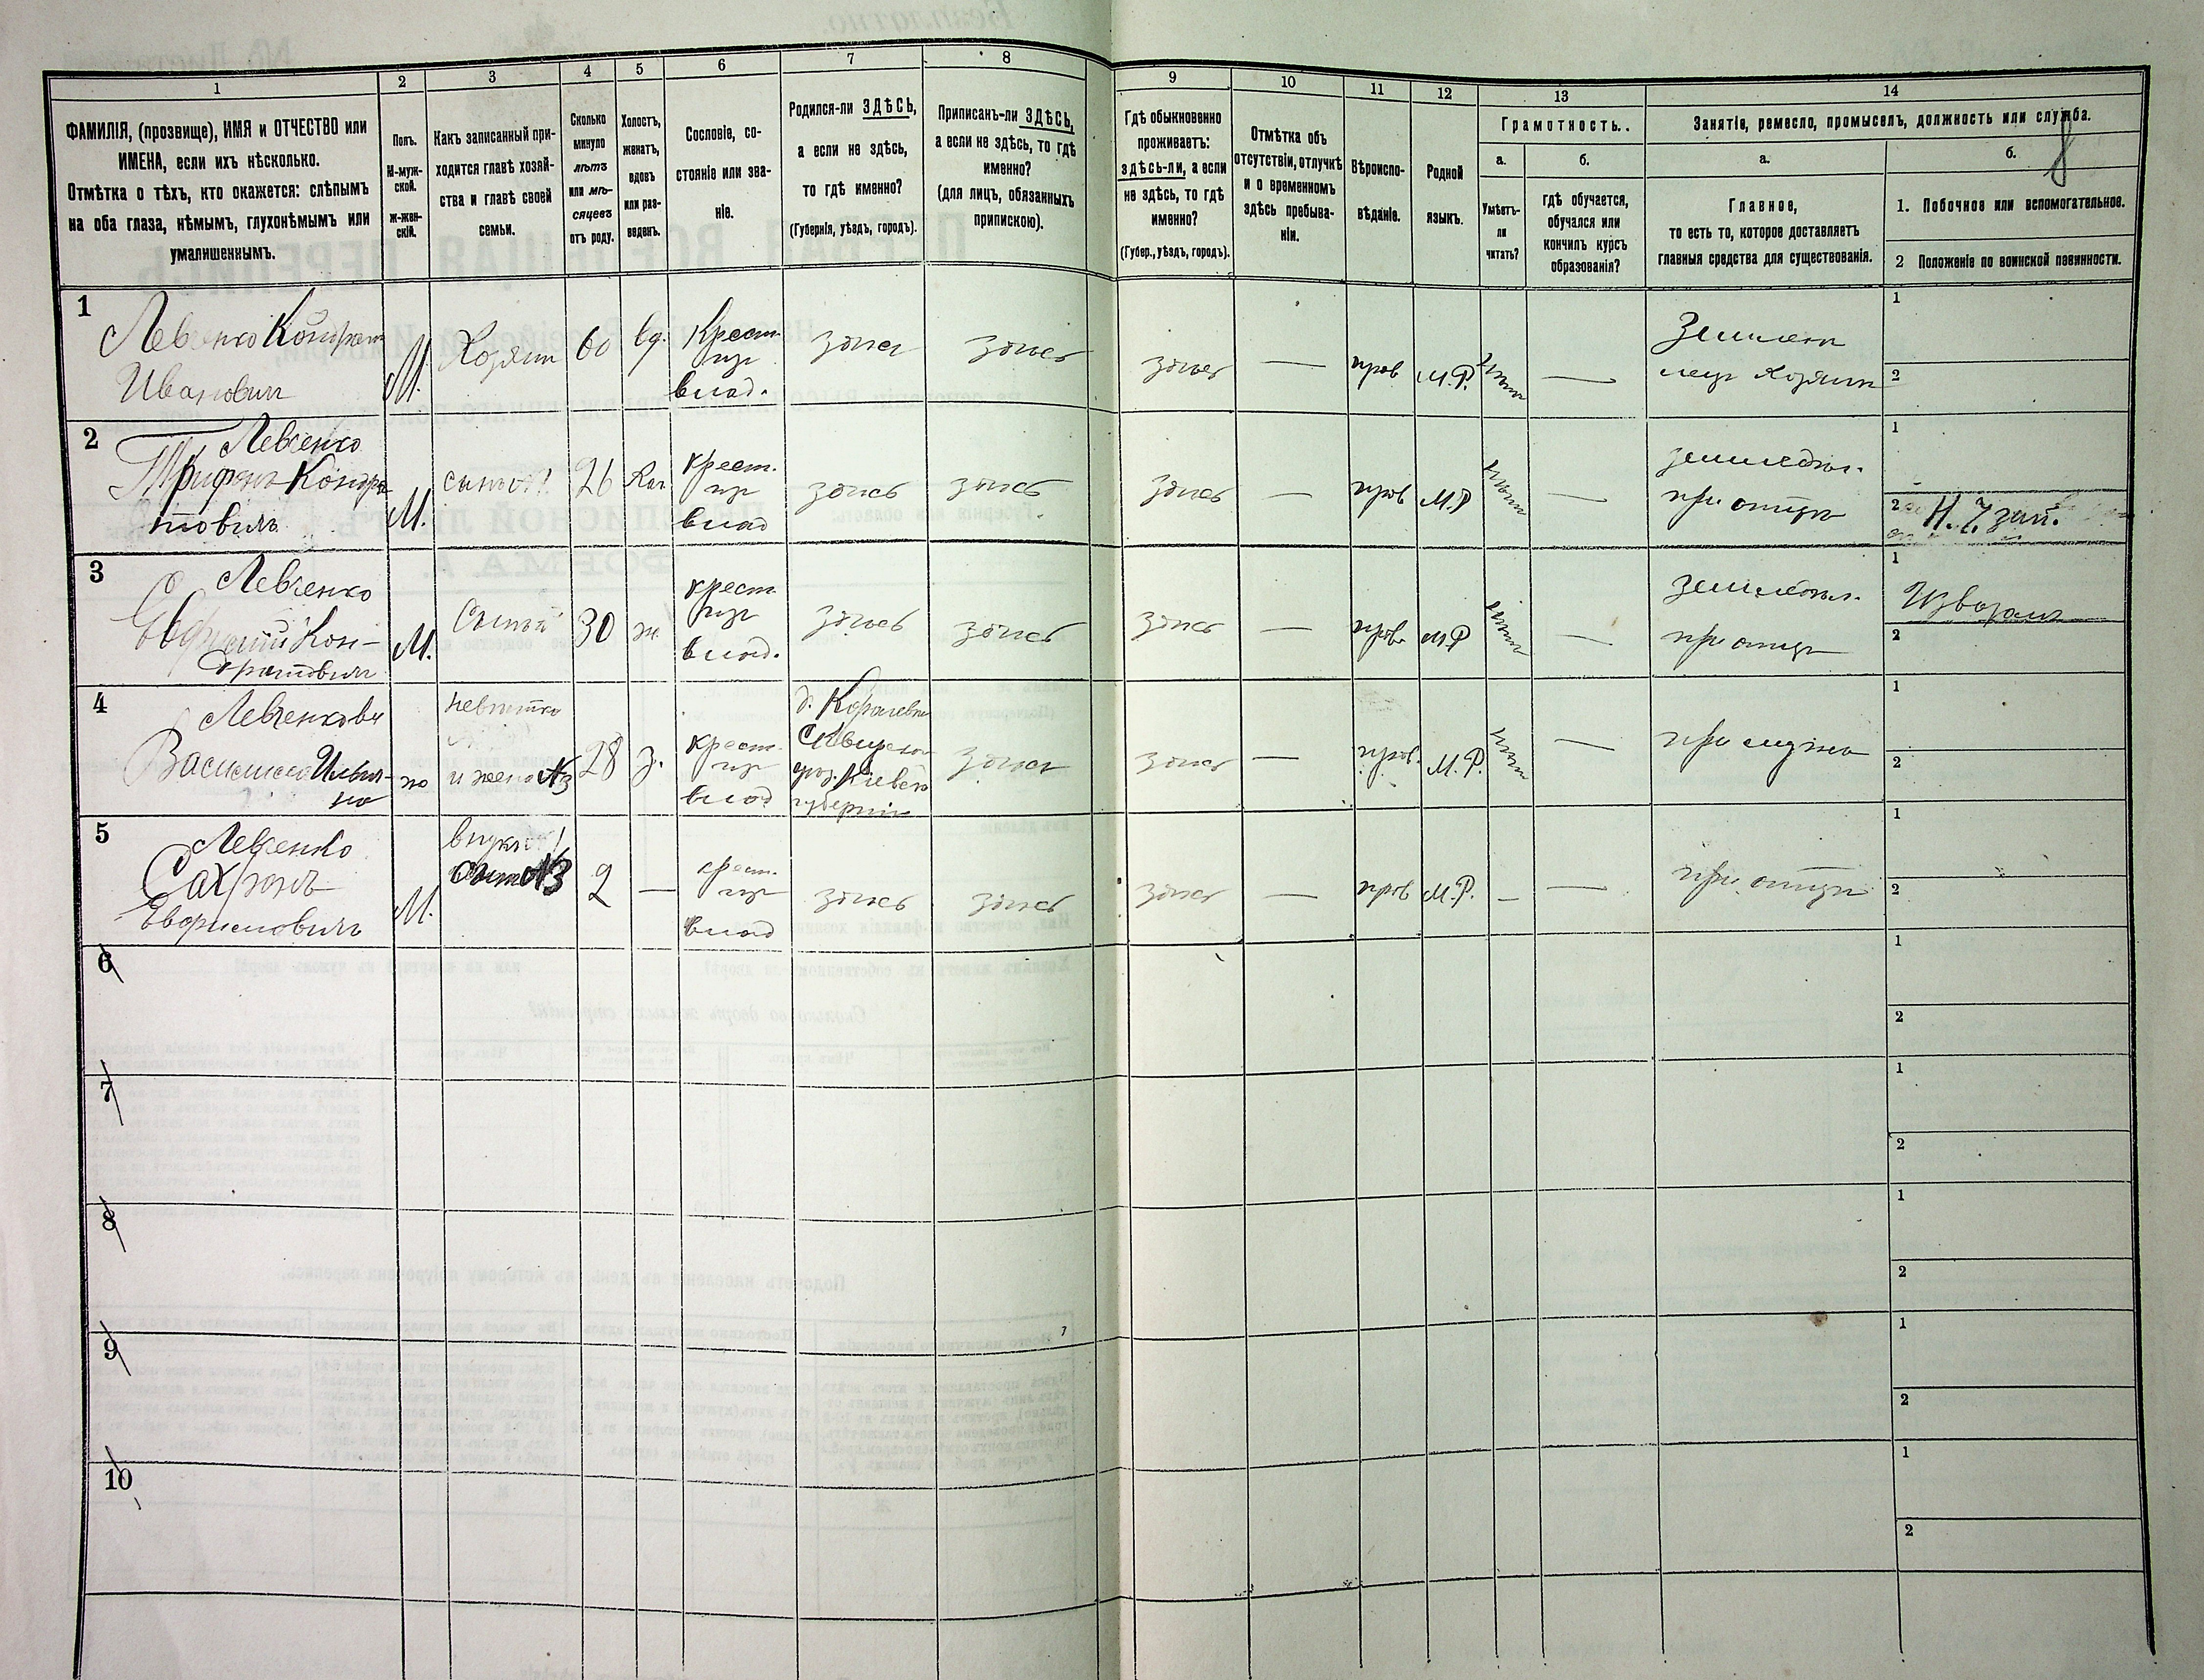 1
2
3
4
5
6
7
8
9
10
11
12
13
14
ФАМИЛІЯ, (прозвище), ИМЯ и ОТЧЕСТВО или
ИМЕНА, если ихъ нѣсколько.
Отмѣтка о тѣхъ, кто окажется: слѣпымъ
на оба глаза, нѣмымъ, глухонѣмымъ или
умалишеннымъ.
Полъ.
М-муж-
ской.
ж-жен-
скій.
Какъ записанный при-
ходится главѣ хозяй-
ства и главѣ своей
семьи.
Сколько
минуло
лѣтъ
или мѣ-
сяцевъ
отъ роду.
Холостъ,
женатъ,
вдовъ
или раз-
веденъ.
Сословіе, со-
стояніе или зва-
ніе.
Родился-ли ЗДѢСЬ,
а если не здѣсь,
то гдѣ именно?
(Губернія, уѣздъ, городъ).
Приписанъ-ли ЗДѢСЬ,
а если не здѣсь, то гдѣ
именно?
(для лицъ, обязанныхъ
припискою).
Гдѣ обыкновенно
проживаетъ:
здѣсь-ли, а если
не здѣсь, то гдѣ
именно?
(Губер., уѣздъ, городъ).
Отмѣтка объ
отсутствіи, отлучкѣ
и о временномъ
здѣсь пребыва-
ніи.
Вѣроиспо-
вѣданіе.
Родной
языкъ.
Грамотность.
а.
б.
Умѣетъ-
ли
читать?
гдѣ обучается,
обучался или
кончилъ курсъ
образованія?
Занятіе, ремесло, промыселъ, должность или служба.
а.
б.
8
Главное,
то есть то, которое доставляетъ
главныя средства для существованія.
1. Побочное или вспомогательное.
2 Положеніе по воинской повинности.
1
Левченко Кондрат
Ивановичъ
М.
Хозяин
60
вд.
Крест.
изъ
влад.
здѣсь
здѣсь
здѣсь
—
прав
М.Р.
—
Хозяин
1
2
2
Левченко
Трифонъ Кондра
товичъ
М.
сынъ №1
26
Хол.
крест.
изъ
влад
здѣсь
здѣсь
здѣсь
—
прав
М.Р
—
земледѣл.
при отцѣ
1
2
3
Левченко
Евфимій Кон-
дратовичъ
М.
Сынъ
30
ж.
крест
изъ
влад.
здѣсь
здѣсь
здѣсь
—
прав.
М.Р
—
земледѣл.
при отцѣ
1
Извозъ
2
4
Левченкова
Василиса Ильи-
на
ж
невѣстка
и жена №3
28
З.
крест.
изъ
влад
уѣз. Кіевск
губерніи
здѣсь
здѣсь
—
прав.
М.Р.
—
при мужѣ
1
2
5
Левченко
Евфимовичъ
М.
внукъ №1
сынъ №3
2
—
крест.
изъ
влад
здѣсь
здѣсь
здѣсь
—
прав
М.Р.
—
—
при отцѣ
1
2
6
1
2
7
1
2
8
1
2
9
1
2
10
1
2